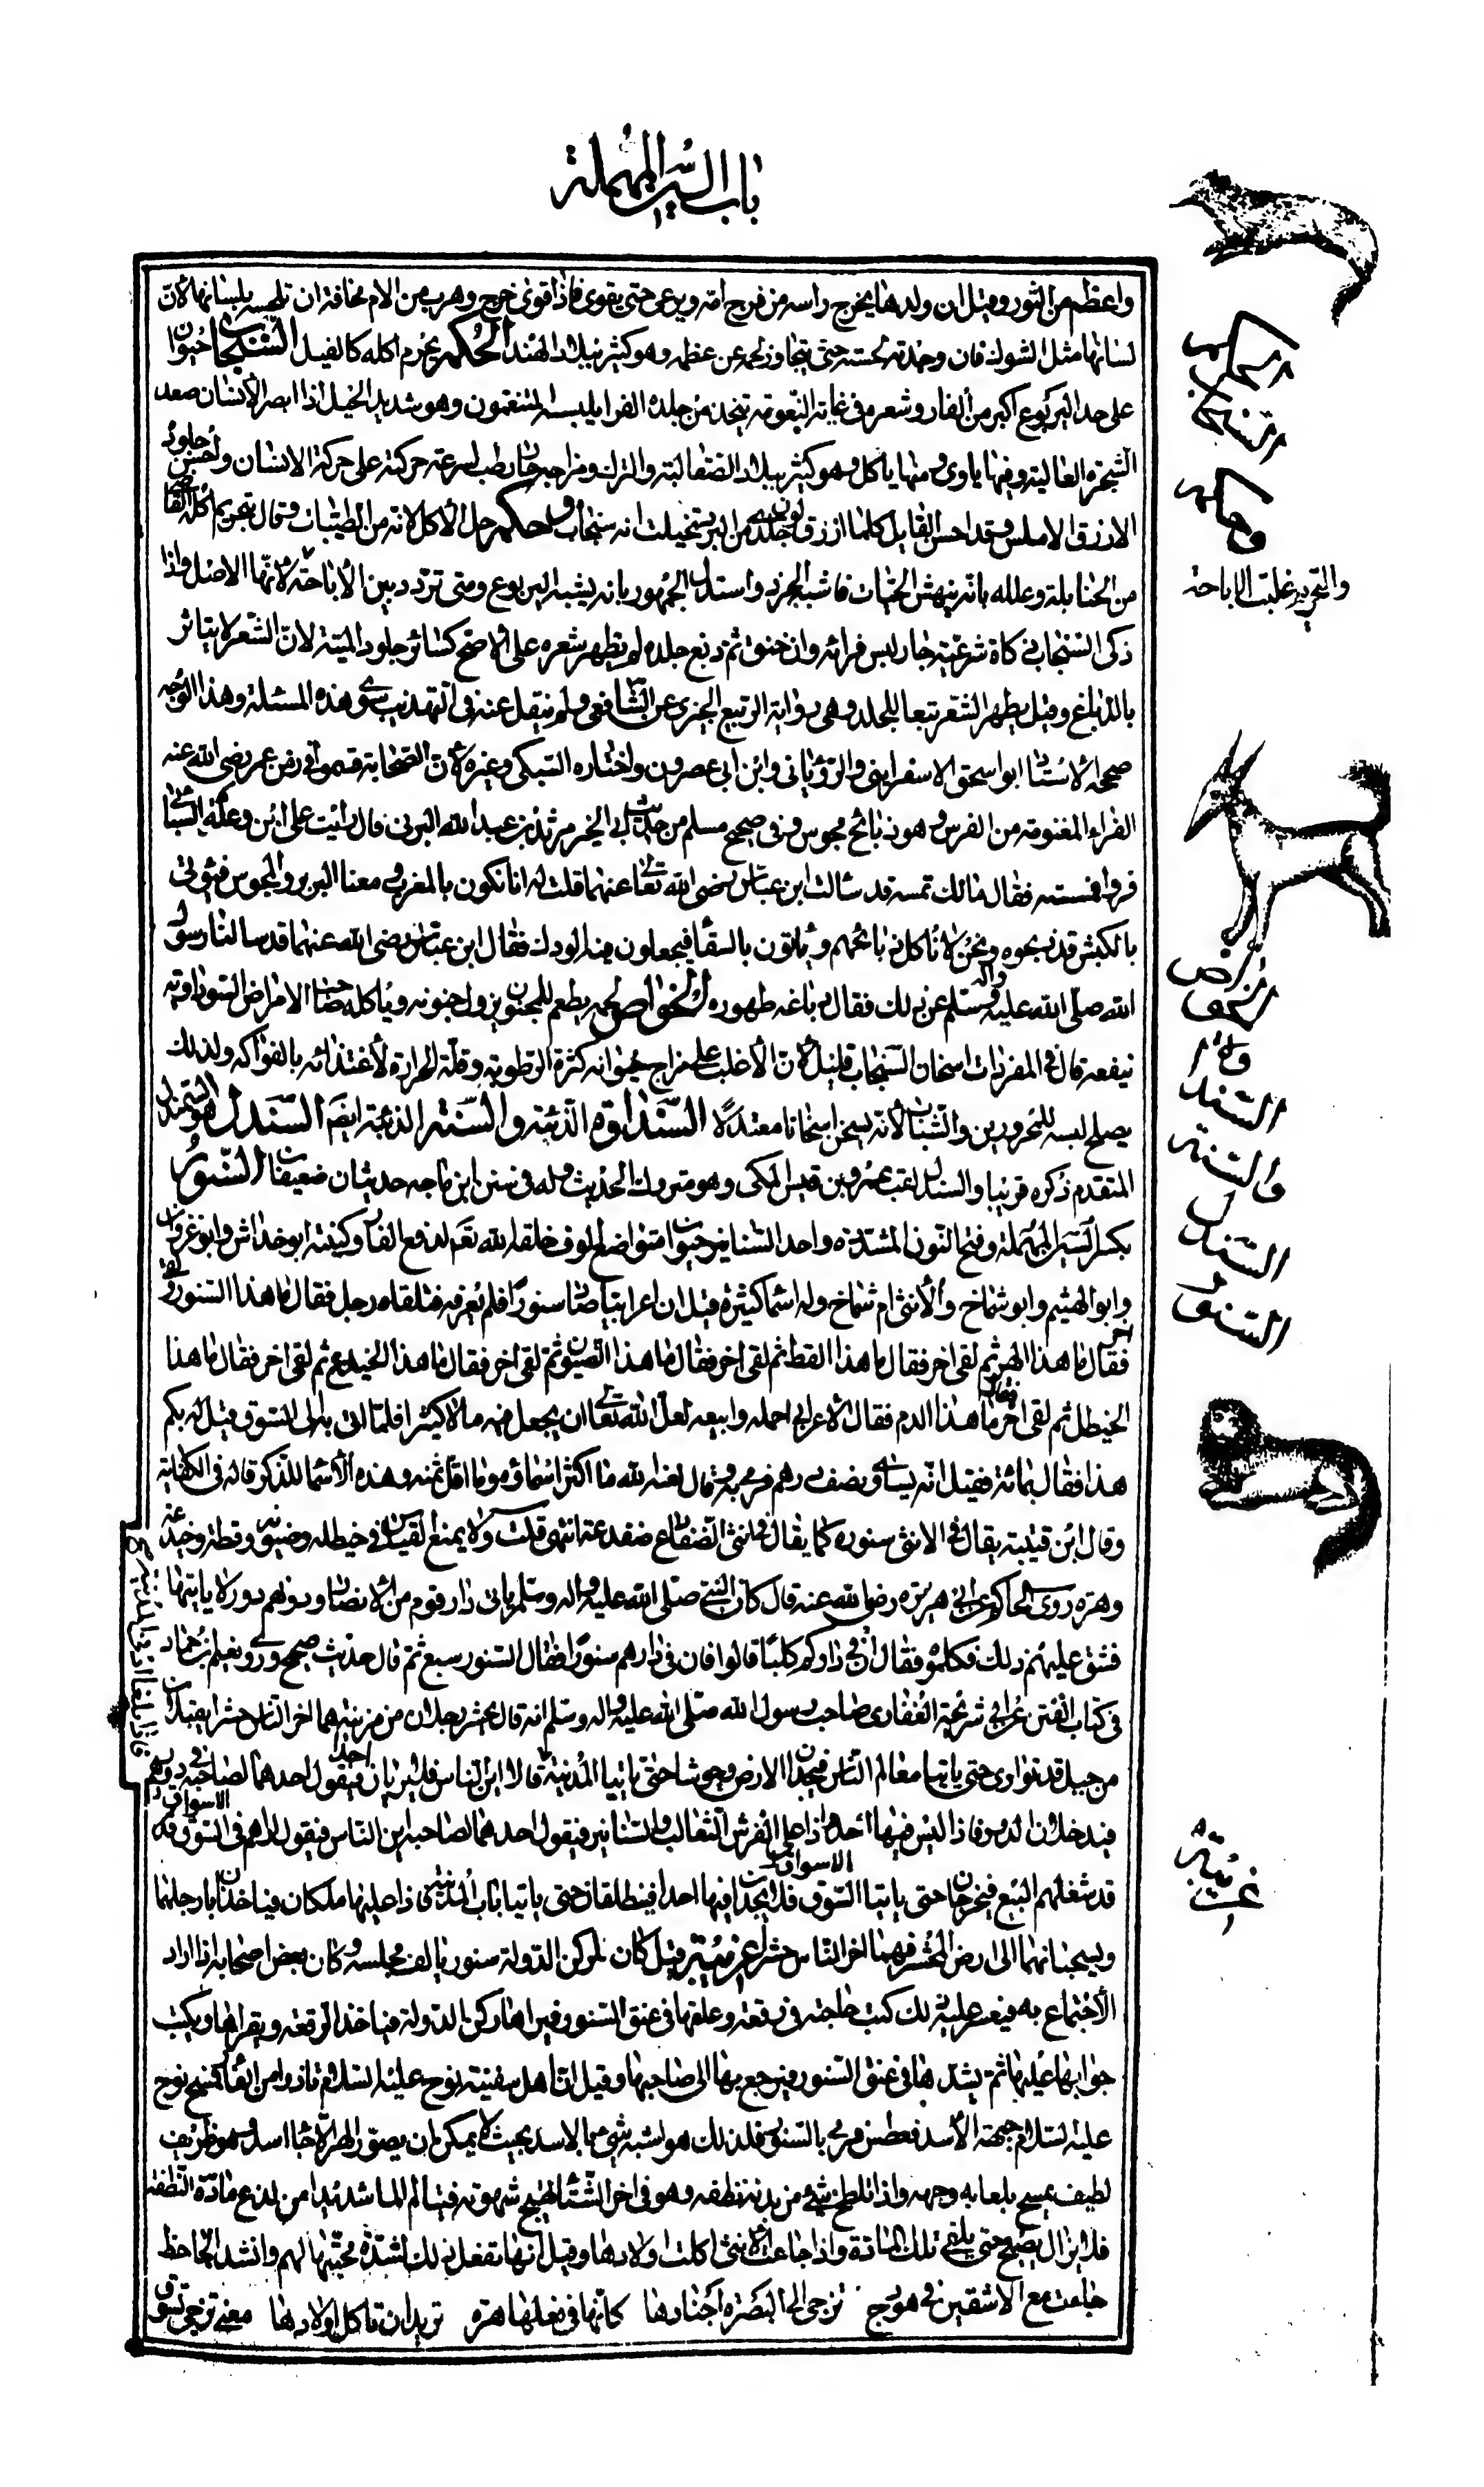 باب السين المهملة
واعظم من الثور وقيل ان ولدها يخرج راسه من فرج امه ويرعى حتى يقوى فاذا قوى خرج وهرب من الام مخافة ان تلحسه بلسانها لان
لسانها مثل الشوك فان وجدته لحسته حتى يتجاوز لحمه عن عظمه وهو كثير ببلاد الهند الحكم يحرم اكله كالفيل السنجاب حيوان
على حد اليربوع اكبر من الفار وشعره في غاية النعومة تتخذ من جلده الفرا يلبسه المتنعمون وهو شديد الحيل اذا ابصر الانسان صعد
الشجرة العالية وفيها ياوى ومنها ياكل وهو كثير ببلاد الصقالبة والترك ومزاجه حار رطب لسرعة حركته على حركة الانسان واحسن جلوده
الازرق الاملس وقد احسن القايل كلما ازرق لون جلدى من البرد تخيلت انه سنجاب وحكمه حل الاكل لانه من الطيبات وقال بتحريم اكله القاضى
من الحنابلة وعلله بانه ينهش الحيات فاشبه الجرذ واستدل الجمهور بانه يشبه اليربوع ومتى تردد بين الاباحة لانها الاصل واذا
والتحريم غلبت الاباحة
ذكى السنجاب ذكاة شرعية جاز لبس فرائه وان خنق ثم دبغ جلده لم يطهر شعره على الاصح كسائر جلود الميتة لان الشعر لا يتاثر
بالدباغ وقيل يطهر الشعر تبعا للجلد وهى رواية الربيع الجيزى عن الشافعى ولم ينقل عنه فى المهذب سوى هذه المسئلة وهذا الوجه
صححه الاستاذ ابو اسحق الاسفراينى والرويانى وابن ابى عصرون واختاره السبكى وغيره لان الصحابة قسموا فى زمن عمر رضى الله عنه
الفراء المغنومة من الفرس وهو ذبائح مجوس وفى صحيح مسلم من حديث ابى الخير مرثد بن عبد الله اليزنى قال رايت على ابن وعلة السبائى
فروا فمسسته فقال مالك تمسه قد سالت ابن عباس رضى الله تعالى عنهما قلت له انا نكون بالمغرب ومعنا البربر والمجوس فيؤتى
بالكبش قد ذبحوه ونحن لا ناكل ذبائحهم وياتون بالسقا فيجعلون فيه الودك فقال ابن عباس رضى الله عنهما قد سالنا رسول
الله صلى الله عليه واله وسلم عن ذلك فقال دباغه طهوره الخواص لحمه يطعم للمجنون يزول جنونه وياكله صاحب الامراض السوداوية
ينفعه قال فى المفردات اسخان السنجاب قليل لان الاغلب على مزاج حيوانه كثرة الرطوبة وقلة الحرارة لاغتذائه بالفواكه ولذلك
يصلح لبسه للمحرورين والشبان لانه يسخن اسخانا معتدلا السنداوة الذئبة والسنه الذئبة ايضا السندل هو السمندل
المتقدم ذكره قريبا والسندل لقب عمرو بن قيس المكى وهو متروك الحديث وله فى سنن ابن ماجه حديثان ضعيفان السنور
بكسر السين المهملة وفتح النون المشددة واحد السنانير حيوان متواضع الوف خلقه الله تعالى لدفع الفار وكنيته ابو خداش وابو غزوان
وابو الهيثم وابو شماخ والانثى ام شماخ وله اسما كثيرة قيل ان اعرابيا صاد سنورا فلم يعرفه فتلقاه رجل فقال ما هذا السنور ولقى
اخر فقال ما هذا الهر ثم لقى اخر فقال ما هذا القط ثم لقى اخر فقال ما هذا الضيون ثم لقى اخر فقال ما هذا الخيدع ثم لقى اخر فقال ما هذا
الخيطل ثم لقى اخر فقال ما هذا الدم فقال الاعرابى احمله وابيعه لعل الله تعالى ان يجعل فيه مالا كثيرا فلما اتى به الى السوق قيل له بكم
هذا فقال بمائة فقيل انه يساوى نصف درهم فرمى به وقال لعنه الله ما اكثر اسماؤه وما اقل ثمنه وهذه الاسما للذكر قاله فى الكفاية
وقال ابن قتيبة يقال فى الانثى سنورة كما يقال فى انثى الضفادع ضفدعة انتهى قلت ولا يمنع القياس فى خيطلة وضيونة وقطة وخيدعة
وهرة روى الحاكم عن ابى هريرة رضى الله عنه قال كان النبى صلى الله عليه واله وسلم ياتى دار قوم من الانصار ودونهم دور لا ياتيها
فشق عليهم ذلك فكلموه فقال ان فى داركم كلبا قالوا فان فى دارهم سنورا فقال السنور سبع ثم قال حديث صحيح وروى نعيم بن حماد
فى كتاب الفتن عن ابى شريحة الغفارى صاحب رسول الله صلى الله عليه واله وسلم انه قال يحشر رجلان من مزينة هما اخر الناس حشرا يقبلان
من جبل قد تواری حتى ياتيا معالم الناس فيجدان الارض وحوشا حتى ياتيا المدينة قالا اين الناس فلا يريان احدا فيقول احدهما لصاحبه فى دورهم
فيدخلان الدور فاذا ليس فيها احد واذا على الفرش الثعالب والسنانير فيقول احدهما لصاحبه اين الناس فيقول اراهم فى السوق الاسواق قد
قد شغلهم البيع فيخرجان حتى ياتيا السوق الاسواق فلا يجدان فيها احدا فينطلقان حتى ياتيا باب المدينة فاذا عليها ملكان فياخذان بارجلهما
ويسحبانهما الى ارض المحشر فهما اخر الناس حشرا غريبة قيل كان لركن الدولة سنور يالف مجلسه وكان بعض اصحابه اذا اراد
الاجتماع به فيعسر عليه ذلك كتب حاجته فى رقعة وعلقها فى عنق السنور فيراها ركن الدولة فياخذ الرقعة ويقراها ويكتب
جوابها عليها ثم يشدها فى عنق السنور فيرجع بها الى صاحبها وقيل ان اهل سفينة نوح عليه السلام تاذوا من الفار فمسح نوح
عليه السلام جبهة الاسد فعطس فرمى بالسنور فلذلك هو اشبه شئ بالاسد بحيث لا يمكن ان يصور الهر الا جا اسدا وهو ظريف
لطيف يمسح بلعابه وجهه واذا تلطخ شئ من بدنه نظفه وهو فى اخر الشتا تهيج شهوته فيتالم الما شديدا من لذع مادة النطفة
فلا يزال يصيح حتى يلقى تلك المادة واذا جاعت الانثى اكلت اولادها وقيل انها تفعل ذلك لشدة محبتها لهم وانشد الجاحظ
جاءت مع الاشقين فى هودج تزجى الى البصرة اجنادها كانها فى فعلها هرة تريد ان تاكل اولادها معنى تزجى تسوق
السنجاب
وحكمه
الخواص
السنداوة
والسنة
السندل
السنور
غريبة